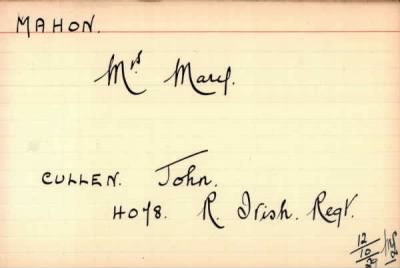 MAHON.
Mrs Mary.
CULLEN. John.
4078. R. Irish. Regt.
12/10/20